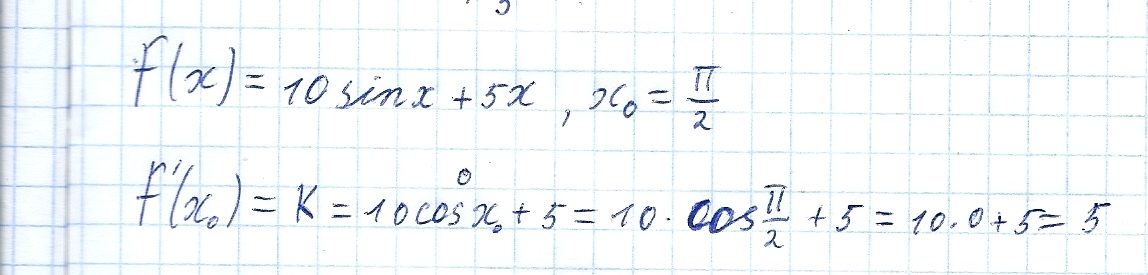 f(x) = 10 sin x + 5x , x₀ = π/2
f'(x₀) = K = 10 cos x₀ + 5 = 10 · cos π/2 + 5 = 10 · 0 + 5 = 5